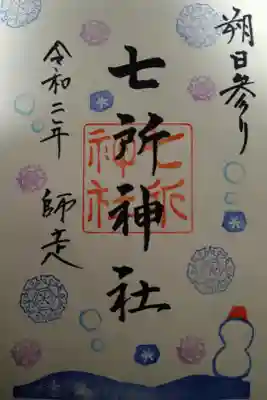 朔日参り
七所神社
七所
神社
令和二年 師走